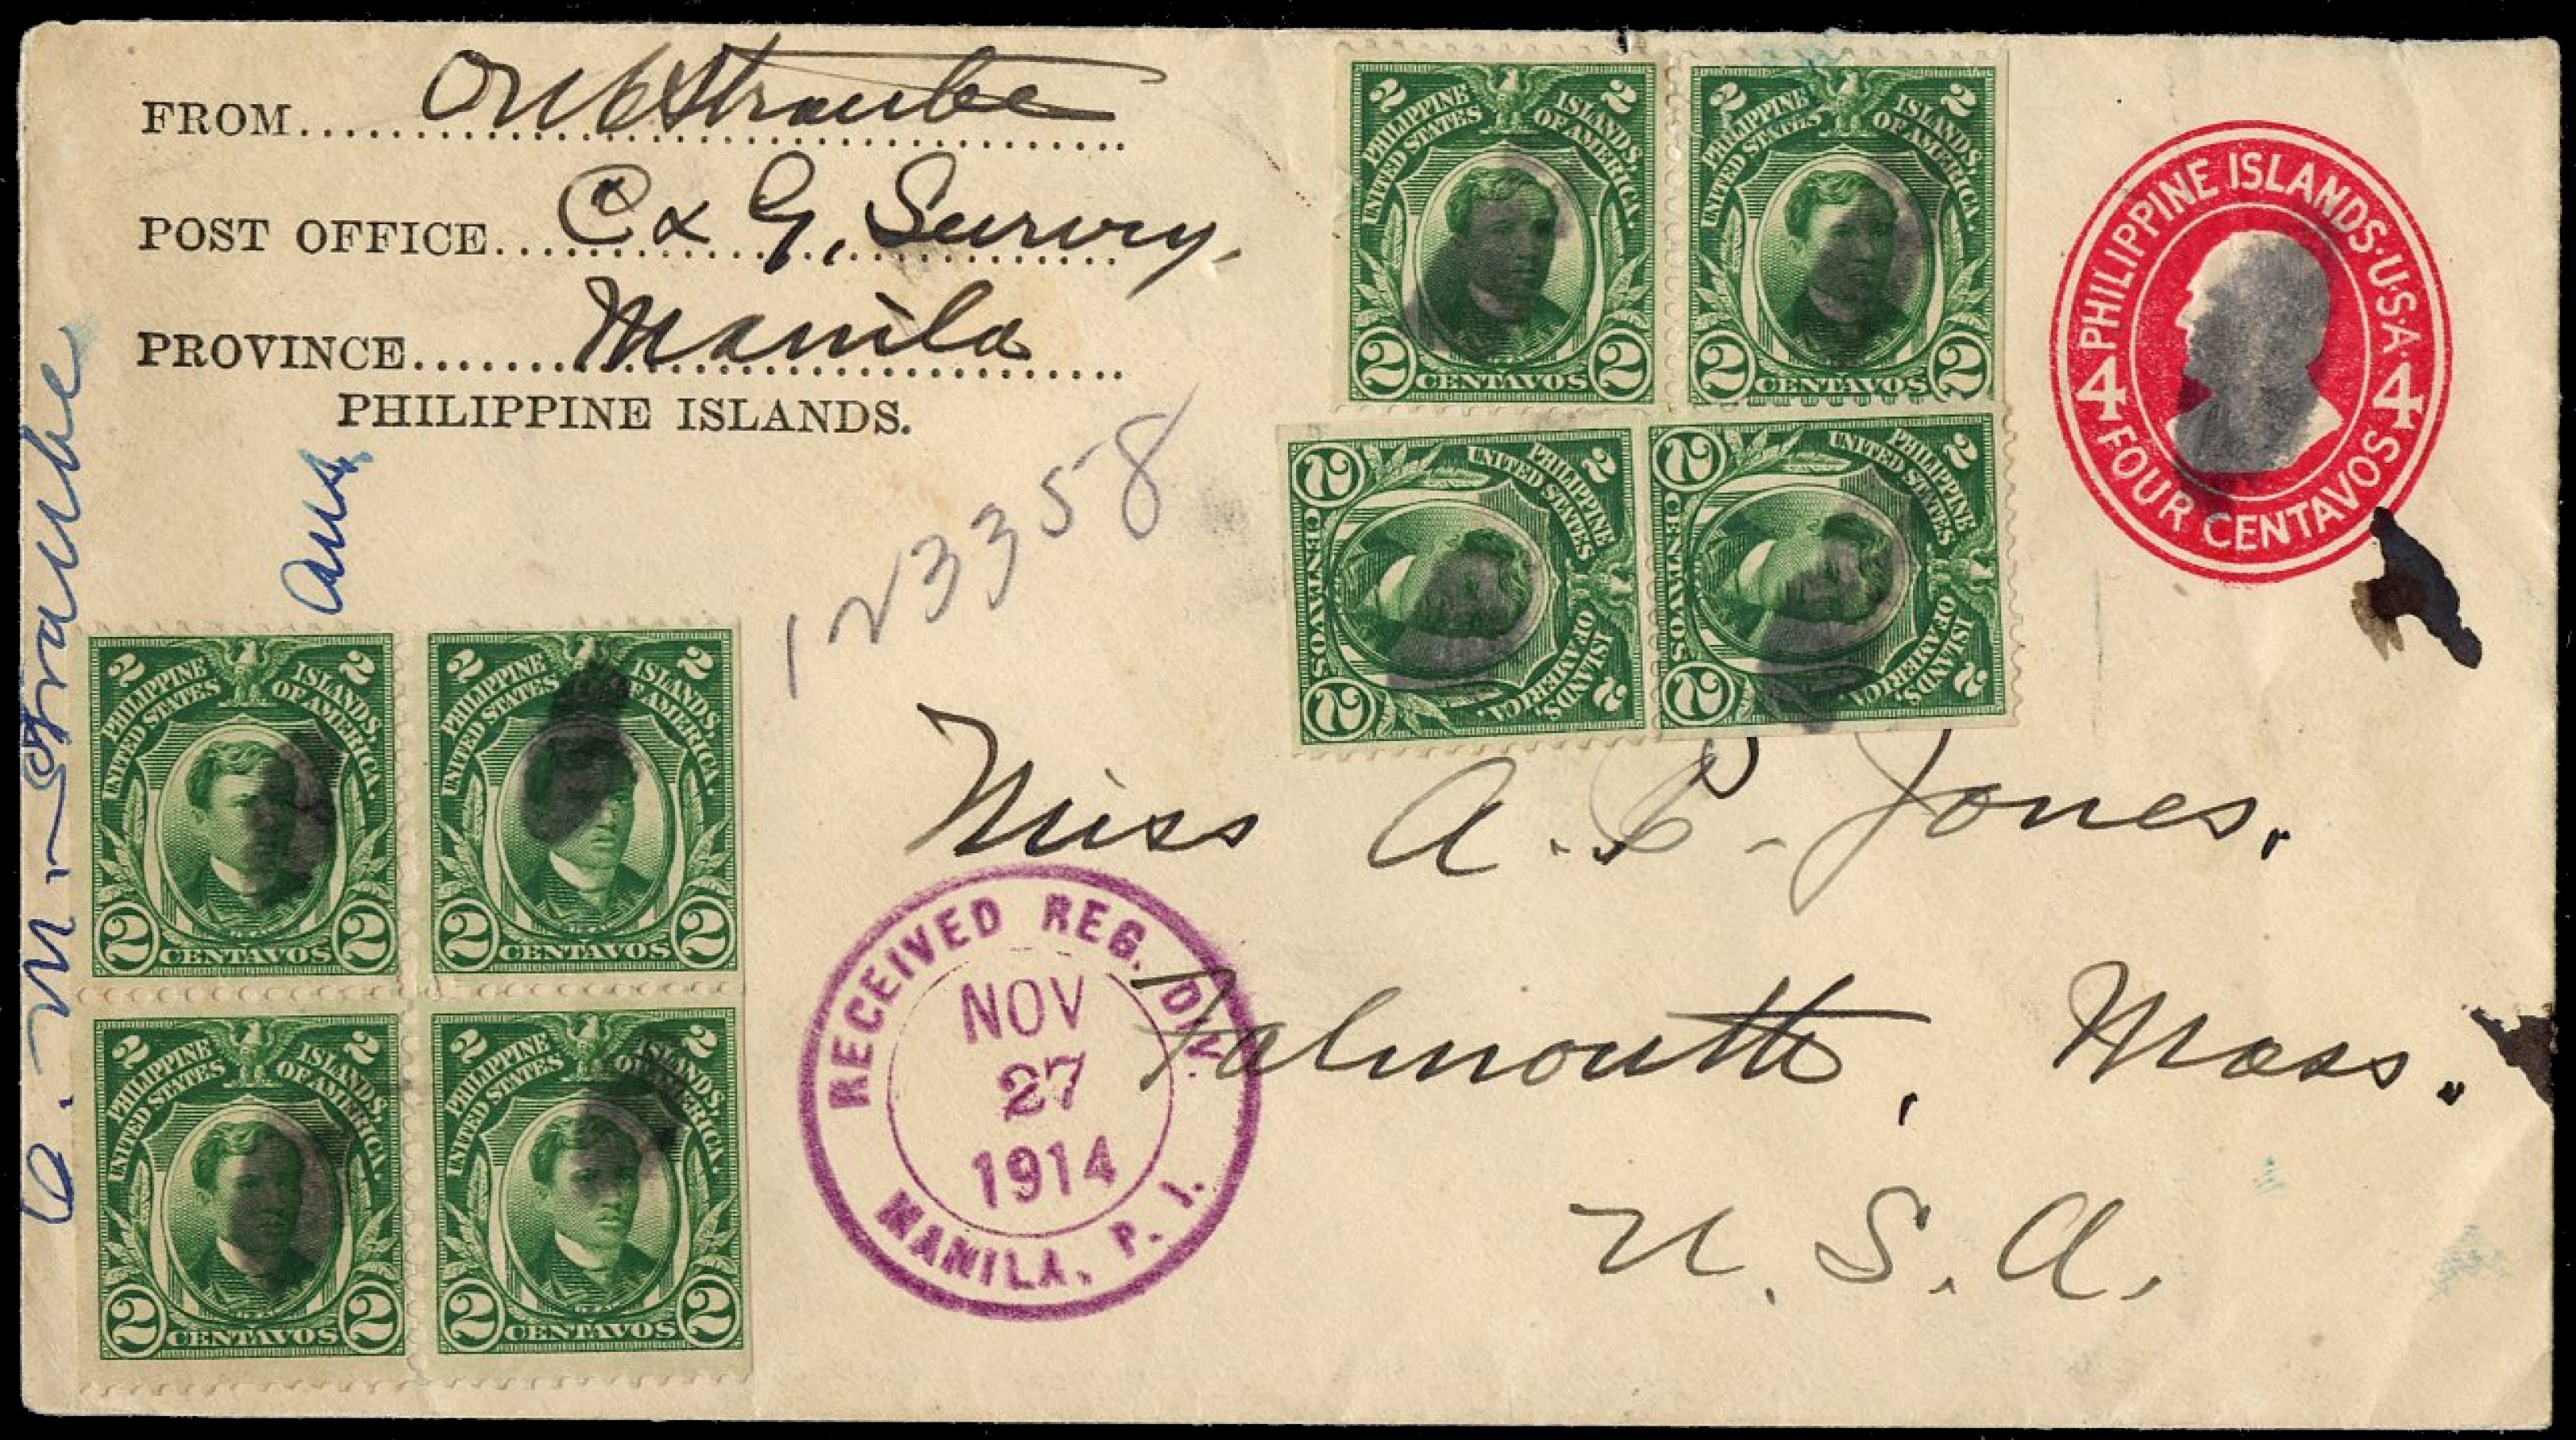 FROM O M Straube
POST OFFICE C & G, Survey.
PROVINCE Manila
PHILIPPINE ISLANDS.
O. M. Straube
123358
PHILIPPINE ISLANDS,
UNITED STATES OF AMERICA.
2 2
2 CENTAVOS 2
PHILIPPINE ISLANDS,
UNITED STATES OF AMERICA.
2 2
2 CENTAVOS 2
PHILIPPINE ISLANDS,
UNITED STATES OF AMERICA.
2 2
2 CENTAVOS 2
PHILIPPINE ISLANDS,
UNITED STATES OF AMERICA.
2 2
2 CENTAVOS 2
PHILIPPINE ISLANDS·U.S.A.
4 4
FOUR CENTAVOS
PHILIPPINE ISLANDS,
UNITED STATES OF AMERICA.
2 2
2 CENTAVOS 2
PHILIPPINE ISLANDS,
UNITED STATES OF AMERICA.
2 2
2 CENTAVOS 2
PHILIPPINE ISLANDS,
UNITED STATES OF AMERICA.
2 2
2 CENTAVOS 2
PHILIPPINE ISLANDS,
UNITED STATES OF AMERICA.
2 2
2 CENTAVOS 2
Miss A. P. Jones.
Falmouth, Mass.
U. S. A.
RECEIVED REG. DIV.
NOV
27
1914
MANILA, P. I.